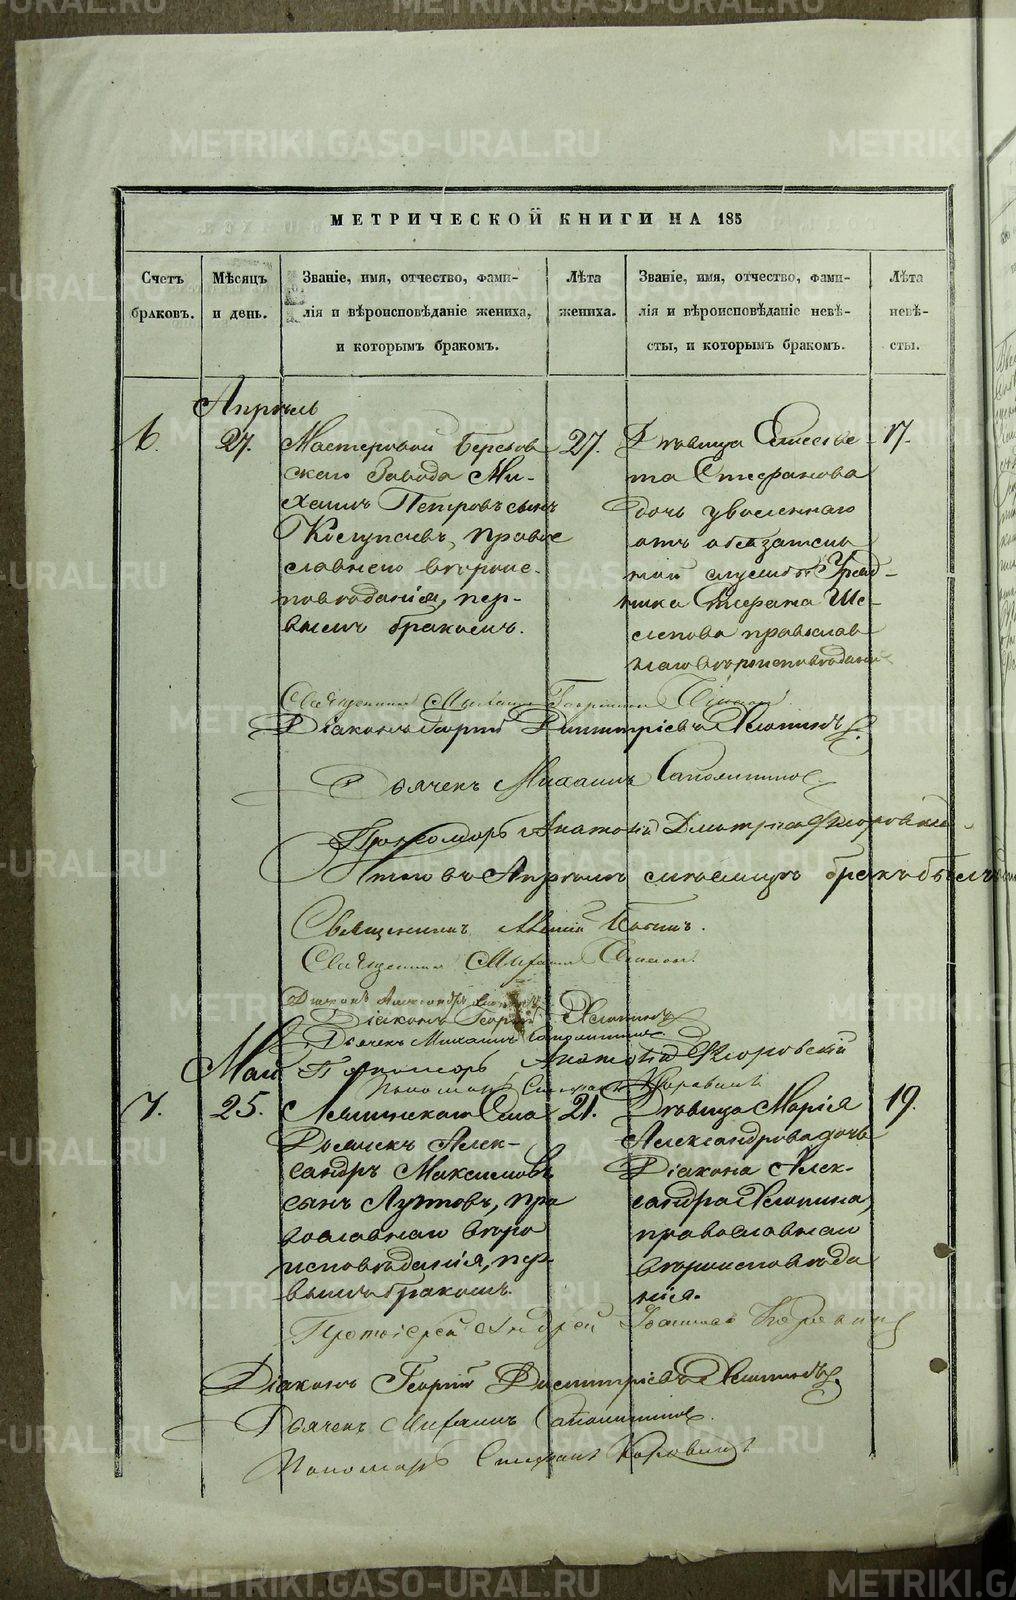 МЕТРИЧЕСКОЙ КНИГИ НА 185
Счетъ браковъ.
Мѣсяцъ и день.
Званіе, имя, отчество, фами-
лія и вѣроисповѣданіе жениха,
и которымъ бракомъ.
Лѣта жениха.
Званіе, имя, отчество, фами-
лія и вѣроисповѣданіе невѣ-
сты, и которымъ бракомъ.
Лѣта невѣ-
сты.
Апрѣль
6.
27.
Мастеровой Березов
скаго Завода Ми-
хаилъ Петровъ сынъ
православ
славнаго вѣроис-
повѣданія, пер-
вымъ бракомъ.
27.
Дѣвица Елисаве-
та Стефанова
дочь уволеннаго
отъ обязатель
ной службы Уряд-
ника Стефана Ше-
лепова православ
наго вѣроисповѣданія
17.
Священникъ
Діаконъ Георгій Димитріевъ Хлопинъ
Дьячекъ Михаилъ
Пономарь Анатолій Флоровскій
Итого въ Апрѣлѣ мѣсяцѣ бракъ былъ
Священникъ
Священникъ
Діаконъ Александръ
Діаконъ Георгій Хлопинъ
Дьячекъ Михаилъ
Май
Пономарь Анатолій Флоровскій
Пономарь Стефанъ Коровинъ
7.
25.
Села
Дьячекъ Алек-
сандръ Максимовъ
сынъ Луговъ, пра
вославнаго вѣро
исповѣданія, пер-
вымъ бракомъ.
21.
Дѣвица Марія
Александрова дочь
Діакона Алек-
сандра Хлопина,
православнаго
вѣроисповѣда
нія.
19.
Протоіерей Андрей
Діаконъ Георгій Димитріевъ Хлопинъ
Дьячекъ Михаилъ
Пономарь Стефанъ Коровинъ
METRIKI.GASO-URAL.RU